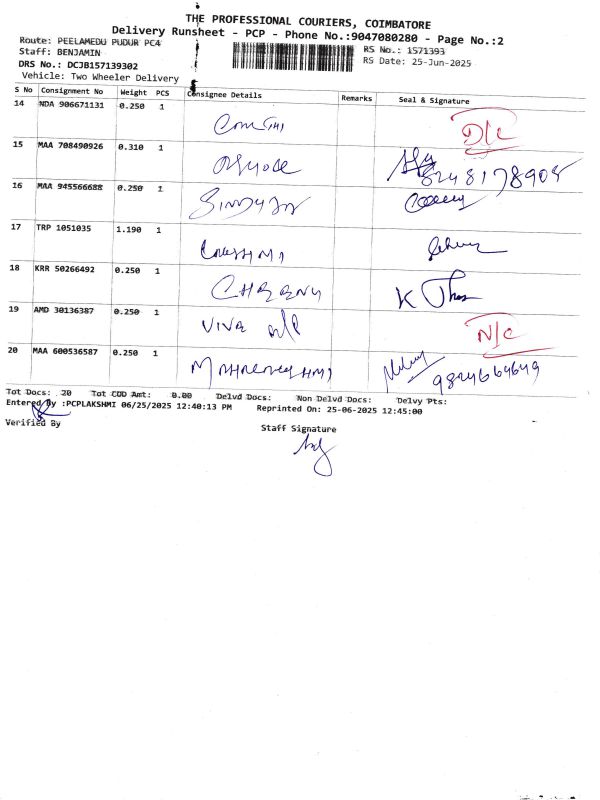 THE PROFESSIONAL COURIERS, COIMBATORE
Delivery Runsheet - PCP - Phone No.:9047080280 - Page No.:2
Route: PEELAMEDU PUDUR PC4
RS No.: 1571393
Staff: BENJAMIN
RS Date: 25-Jun-2025
DRS No.: DCJB157139302
Vehicle: Two Wheeler Delivery
S No Consignment No Weight PCS Consignee Details Remarks Seal & Signature
14 NDA 906671131 0.250 1 D/C
15 MAA 708490926 0.310 1 8248178908
16 MAA 945566688 0.250 1
17 TRP 1051035 1.190 1
18 KRR 50266492 0.250 1
19 AMD 30136387 0.250 1 N/C
20 MAA 600536587 0.250 1
Tot Docs: 20 Tot COD Amt: 0.00 Delvd Docs: Non Delvd Docs: Delvy Pts:
Entered By :PCPLAKSHMI 06/25/2025 12:40:13 PM Reprinted On: 25-06-2025 12:45:00
Verified By
Staff Signature